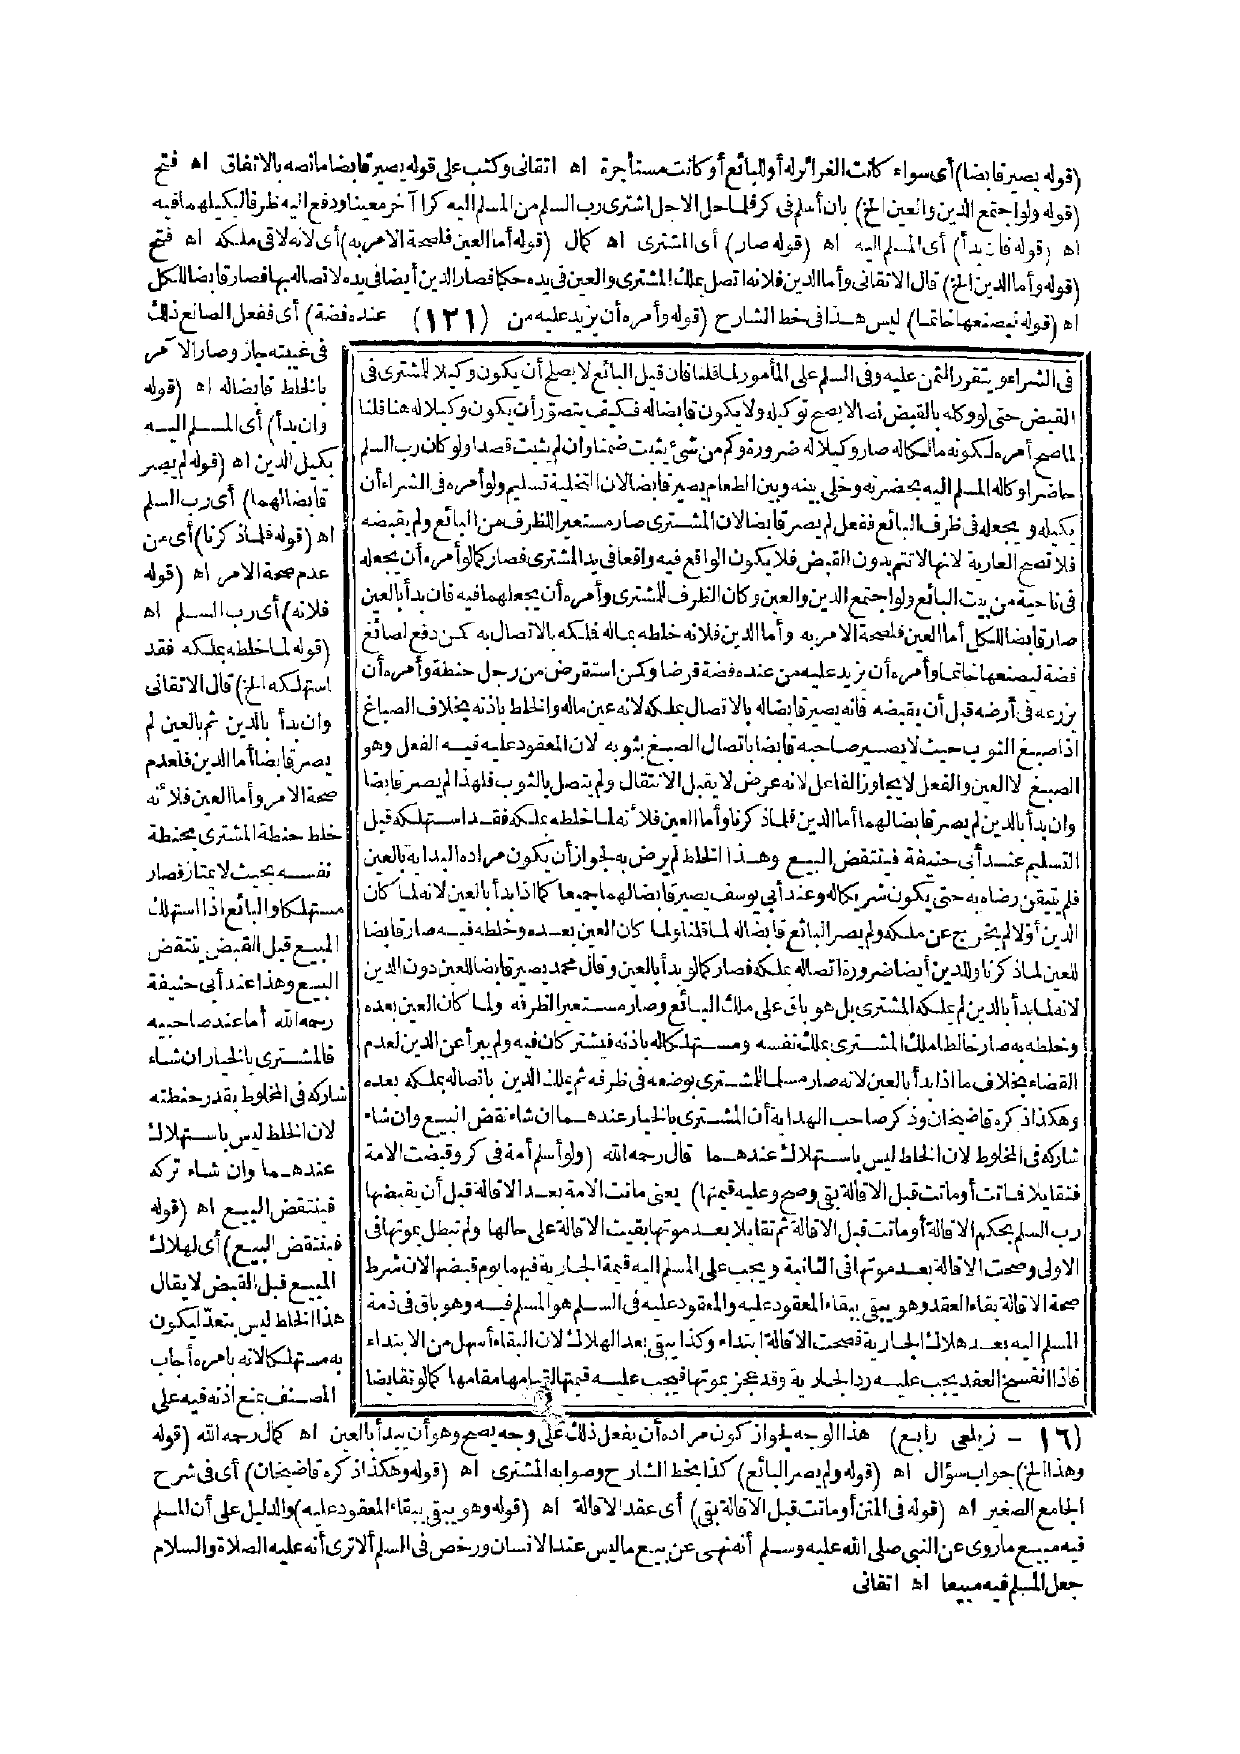 (قوله يصير قابضا) أى سواء كانت الغرائر له أو للبائع أو كانت مستأجرة اه اتقانى وكتب على قوله يصير قابضا مانصه بالاتفاق اه فتح
(قوله ولو اجتمع الدين والعين الخ) بان أسلم فى كر فلما حل الاجل اشترى رب السلم من المسلم اليه كرا آخر معينا ودفع اليه ظرفا ليكيلهما فيه
اه (قوله فان بدأ) أى المسلم اليه اه (قوله صار) أى المشترى اه كمال (قوله أما العين فلصحة الامر به) أى لانه لاقى ملكه اه فتح
(قوله وأما الدين الخ) قال الاتقانى وأما الدين فلانه اتصل بملك المشترى والعين فى يده حكما فصار الدين أيضا فى يده لاتصاله بها فصار قابضا للكل
اه (قوله ليصنعها خاتما) ليس هذا فى خط الشارح (قوله وأمره أن يزيد عليه من (١٢١) عنده فضة) أى ففعل الصائغ ذلك
فى غيبته جاز وصار الآمر
بالخلط قابضا له اه (قوله
وان بدأ) أى المسلم اليه
بكيل الدين اه (قوله لم يصر
قابضا لهما) أى رب السلم
اه (قوله فلما ذكرنا) أى من
عدم صحة الامر اه (قوله
فلانه) أى رب السلم اه
(قوله لما خلطه بملكه فقد
استهلكه الخ) قال الاتقانى
وان بدأ بالدين ثم بالعين لم
يصر قابضا أما الدين فلعدم
صحة الامر وأما العين فلأنه
خلط حنطة المشترى بحنطة
نفسه بحيث لا يمتاز فصار
مستهلكا والبائع اذا استهلك
المبيع قبل القبض ينتقض
البيع وهذا عند أبى حنيفة
رحمه الله أما عند صاحبيه
فالمشترى بالخيار ان شاء
شاركه فى المخلوط بقدر حنطته
لان الخلط ليس باستهلاك
عندهما وان شاء تركه
فينتقض البيع اه (قوله
فينتقض البيع) أى لهلاك
المبيع قبل القبض لا يقال
هذا الخلط ليس بتعد ليكون
به مستهلكا لانه بامره أجاب
المصنف بمنع اذنه فيه على
فى الشراء ويتقرر الثمن عليه وفى السلم على المأمور لما قلنا فان قيل البائع لا يصلح أن يكون وكيلا للمشترى فى
القبض حتى لو وكله بالقبض نصا لا يصح توكيله ولا يكون قابضا له فكيف يتصور أن يكون وكيلا له هنا قلنا
لما صح أمره لكونه مالكا له صار وكيلا له ضرورة وكم من شئ يثبت ضمنا وان لم يثبت قصدا ولو كان رب السلم
حاضرا وكاله المسلم اليه بحضرته وخلى بينه وبين الطعام يصير قابضا لان التخلية تسليم ولو أمره فى الشراء أن
يكيله ويجعله فى ظرف البائع ففعل لم يصر قابضا لان المشترى صار مستعيرا للظرف من البائع ولم يقبضه
فلا تصح العارية لانها لا تتم بدون القبض فلا يكون الواقع فيه واقعا فى يد المشترى فصار كما لو أمره أن يجعله
فى ناحية من بيت البائع ولو اجتمع الدين والعين وكان الظرف للمشترى وأمره أن يجعلهما فيه فان بدأ بالعين
صار قابضا للكل أما العين فلصحة الامر به وأما الدين فلانه خلطه بماله فملكه بالاتصال به كمن دفع لصائغ
فضة ليصنعها خاتما وأمره أن يزيد عليه من عنده فضة قرضا وكمن استقرض من رجل حنطة وأمره أن
يزرعه فى أرضه قبل أن يقبضه فانه يصير قابضا له بالاتصال بملكه لانه عين ماله والخلط باذنه بخلاف الصباغ
اذا صبغ الثوب حيث لا يصير صاحبه قابضا باتصال الصبغ بثوبه لان المعقود عليه فيه الفعل وهو
الصبغ لا العين والفعل لا يجاوز الفاعل لانه عرض لا يقبل الانتقال ولم يتصل بالثوب فلهذا لم يصر قابضا
وان بدأ بالدين لم يصر قابضا لهما أما الدين فلما ذكرنا وأما العين فلأنه لما خلطه بملكه فقد استهلكه قبل
التسليم عند أبى حنيفة فينتقض البيع وهذا الخلط لم يرض به لجواز أن يكون مراده البداية بالعين
فلم يتيقن رضاه به حتى يكون شريكا له وعند أبى يوسف يصير قابضا لهما جميعا كما اذا بدأ بالعين لانه لما كان
الدين أولا لم يخرج عن ملكه ولم يصر البائع قابضا له لما قلنا ولما كان العين بعده وخلطه فيه صار قابضا
للعين لما ذكرنا وللدين أيضا ضرورة اتصاله بملكه فصار كما لو بدأ بالعين وقال محمد يصير قابضا للعين دون الدين
لانه لما بدأ بالدين لم يملكه المشترى بل هو باق على ملك البائع وصار مستعيرا لظرفه ولما كان العين بعده
وخلطه به صار خالطا ملك المشترى بملك نفسه ومستهلكا له باذنه فيشتركان فيه ولم يبرأ عن الدين لعدم
القضاء بخلاف ما اذا بدأ بالعين لانه صار مسلما للمشترى بوضعه فى ظرفه ثم ملك الدين باتصاله بملكه بعده
وهكذا ذكره قاضيخان وذكر صاحب الهداية أن المشترى بالخيار عندهما ان شاء نقض البيع وان شاء
شاركه فى المخلوط لان الخلط ليس باستهلاك عندهما قال رحمه الله (ولو أسلم أمة فى كر وقبضت الامة
فتقايلا فماتت أو ماتت قبل الاقالة بقى وصح وعليه قيمتها) يعنى ماتت الامة بعد الاقالة قبل أن يقبضها
رب السلم بحكم الاقالة أو ماتت قبل الاقالة ثم تقايلا بعد موتها بقيت الاقالة على حالها ولم تبطل بموتها فى
الاولى وصحت الاقالة بعد موتها فى الثانية ويجب على المسلم اليه قيمة الجارية فيهما يوم قبضها لان شرط
صحة الاقالة بقاء العقد وهو يبقى ببقاء المعقود عليه والمعقود عليه فى السلم هو المسلم فيه وهو باق فى ذمة
المسلم اليه بعد هلاك الجارية فصحت الاقالة ابتداء وكذا يبقى بعد الهلاك لان البقاء أسهل من الابتداء
فاذا انفسخ العقد يجب عليه رد الجارية وقد عجز بموتها فيجب عليه قيمتها لقيامها مقامها كما لو تقايضا
(١٦ - زيلعى رابع) هذا الوجه لجواز كون مراده أن يفعل ذلك على وجه يصح وهو أن يبدأ بالعين اه كمال رحمه الله (قوله
وهذا الخ) جواب سؤال اه (قوله ولم يصر البائع) كذا بخط الشارح وصوابه المشترى اه (قوله وهكذا ذكره قاضيخان) أى فى شرح
الجامع الصغير اه (قوله فى المتن أو ماتت قبل الاقالة بقى) أى عقد الاقالة اه (قوله وهو يبقى ببقاء المعقود عليه) والدليل على أن المسلم
فيه مبيع ما روى عن النبى صلى الله عليه وسلم أنه نهى عن بيع ما ليس عند الانسان ورخص فى السلم ألا ترى أنه عليه الصلاة والسلام
جعل المسلم فيه مبيعا اه اتقانى